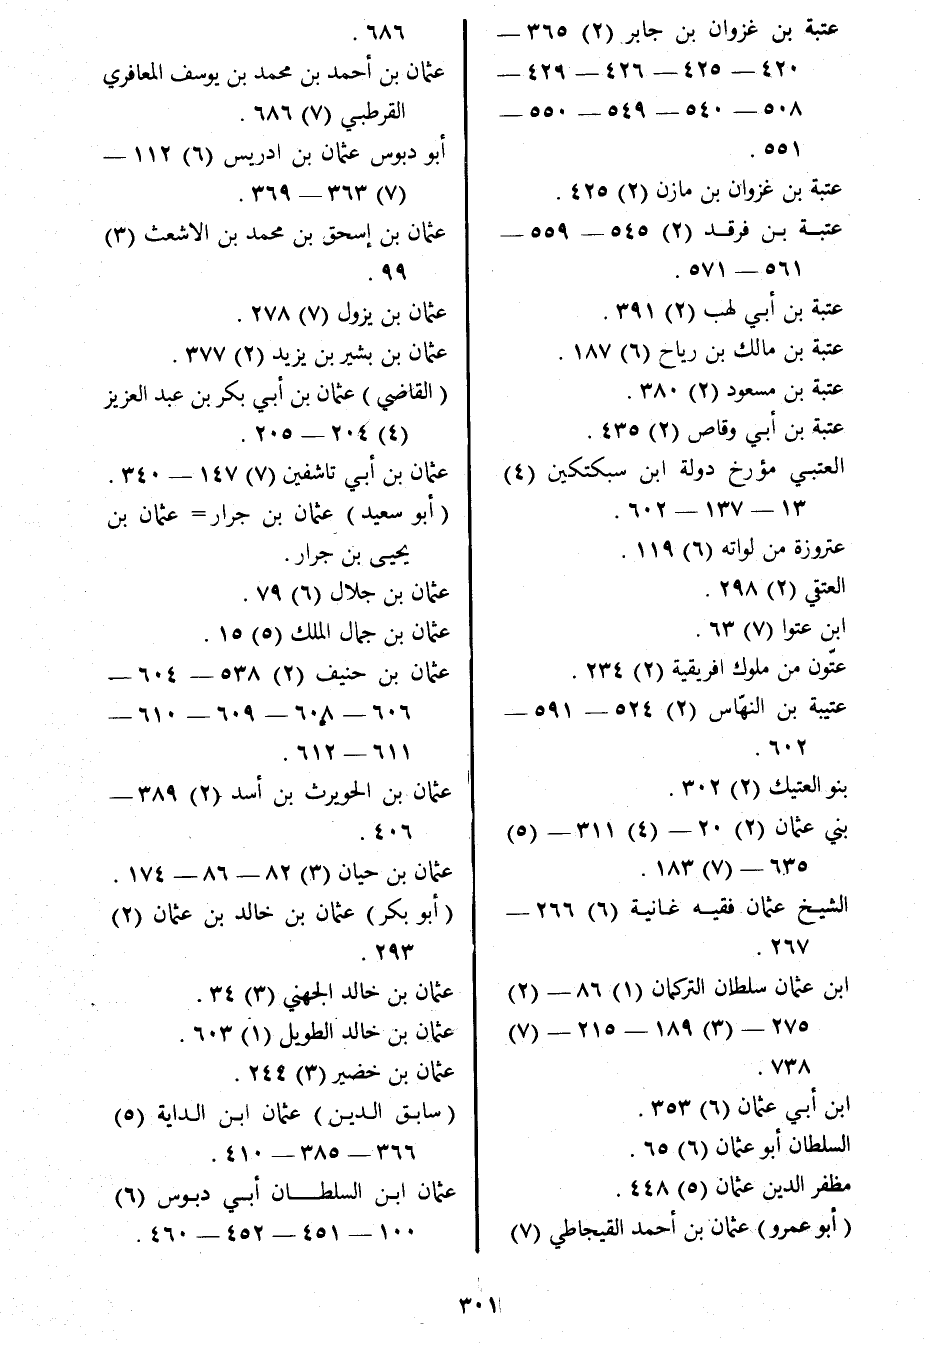 عتبة بن غزوان بن جابر (٢) ٣٦٥ —
٤٢٠ — ٤٢٥ — ٤٢٦ — ٤٢٩ —
٥٠٨ — ٥٤٠ — ٥٤٩ — ٥٥٠ —
٥٥١ .
عتبة بن غزوان بن مازن (٢) ٤٢٥ .
عتبة بن فرقد (٢) ٥٤٥ — ٥٥٩ —
٥٦١ — ٥٧١ .
عتبة بن أبي لهب (٢) ٣٩١ .
عتبة بن مالك بن رياح (٦) ١٨٧ .
عتبة بن مسعود (٢) ٣٨٠ .
عتبة بن أبي وقاص (٢) ٤٣٥ .
العتبي مؤرخ دولة ابن سبكتكين (٤)
١٣ — ١٣٧ — ٦٠٢ .
عتروزة من لواته (٦) ١١٩ .
العتقي (٢) ٢٩٨ .
ابن عتوا (٧) ٦٣ .
عتّون من ملوك افريقية (٢) ٢٣٤ .
عتيبة بن النهّاس (٢) ٥٢٤ — ٥٩١ —
٦٠٢ .
بنو العتيك (٢) ٣٠٢ .
بني عثمان (٢) ٢٠ — (٤) ٣١١ — (٥)
٦٣٥ — (٧) ١٨٣ .
الشيخ عثمان فقيه غانية (٦) ٢٦٦ —
٢٦٧ .
ابن عثمان سلطان التركمان (١) ٨٦ — (٢)
٢٧٥ — (٣) ١٨٩ — ٢١٥ — (٧)
٧٣٨ .
ابن أبي عثمان (٦) ٣٥٣ .
السلطان أبو عثمان (٦) ٦٥ .
مظفر الدين عثمان (٥) ٤٤٨ .
( أبو عمرو ) عثمان بن أحمد القيجاطي (٧)
٦٨٦ .
عثمان بن أحمد بن محمد بن يوسف المعافري
القرطبي (٧) ٦٨٦ .
أبو دبوس عثمان بن ادريس (٦) ١١٢ —
(٧) ٣٦٣ — ٣٦٩ .
عثمان بن إسحق بن محمد بن الاشعث (٣)
٩٩ .
عثمان بن يزول (٧) ٢٧٨ .
عثمان بن بشير بن يزيد (٢) ٣٧٧ .
( القاضي ) عثمان بن أبي بكر بن عبد العزيز
(٤) ٢٠٤ — ٢٠٥ .
عثمان بن أبي تاشفين (٧) ١٤٧ — ٣٤٠ .
( أبو سعيد ) عثمان بن جرار = عثمان بن
يحيى بن جرار .
عثمان بن جلال (٦) ٧٩ .
عثمان بن جمال الملك (٥) ١٥ .
عثمان بن حنيف (٢) ٥٣٨ — ٦٠٤ —
٦٠٦ — ٦٠٨ — ٦٠٩ — ٦١٠ —
٦١١ — ٦١٢ .
عثمان بن الحويرث بن أسد (٢) ٣٨٩ —
٤٠٦ .
عثمان بن حيان (٣) ٨٢ — ٨٦ — ١٧٤ .
( أبو بكر ) عثمان بن خالد بن عثمان (٢)
٢٩٣ .
عثمان بن خالد الجهني (٣) ٣٤ .
عثمان بن خالد الطويل (١) ٦٠٣ .
عثمان بن خضير (٣) ٢٤٤ .
( سابق الدين ) عثمان ابن الداية (٥)
٣٦٦ — ٣٨٥ — ٤١٠ .
عثمان ابن السلطان أبي دبوس (٦)
١٠٠ — ٤٥١ — ٤٥٢ — ٤٦٠ .
٣٠١